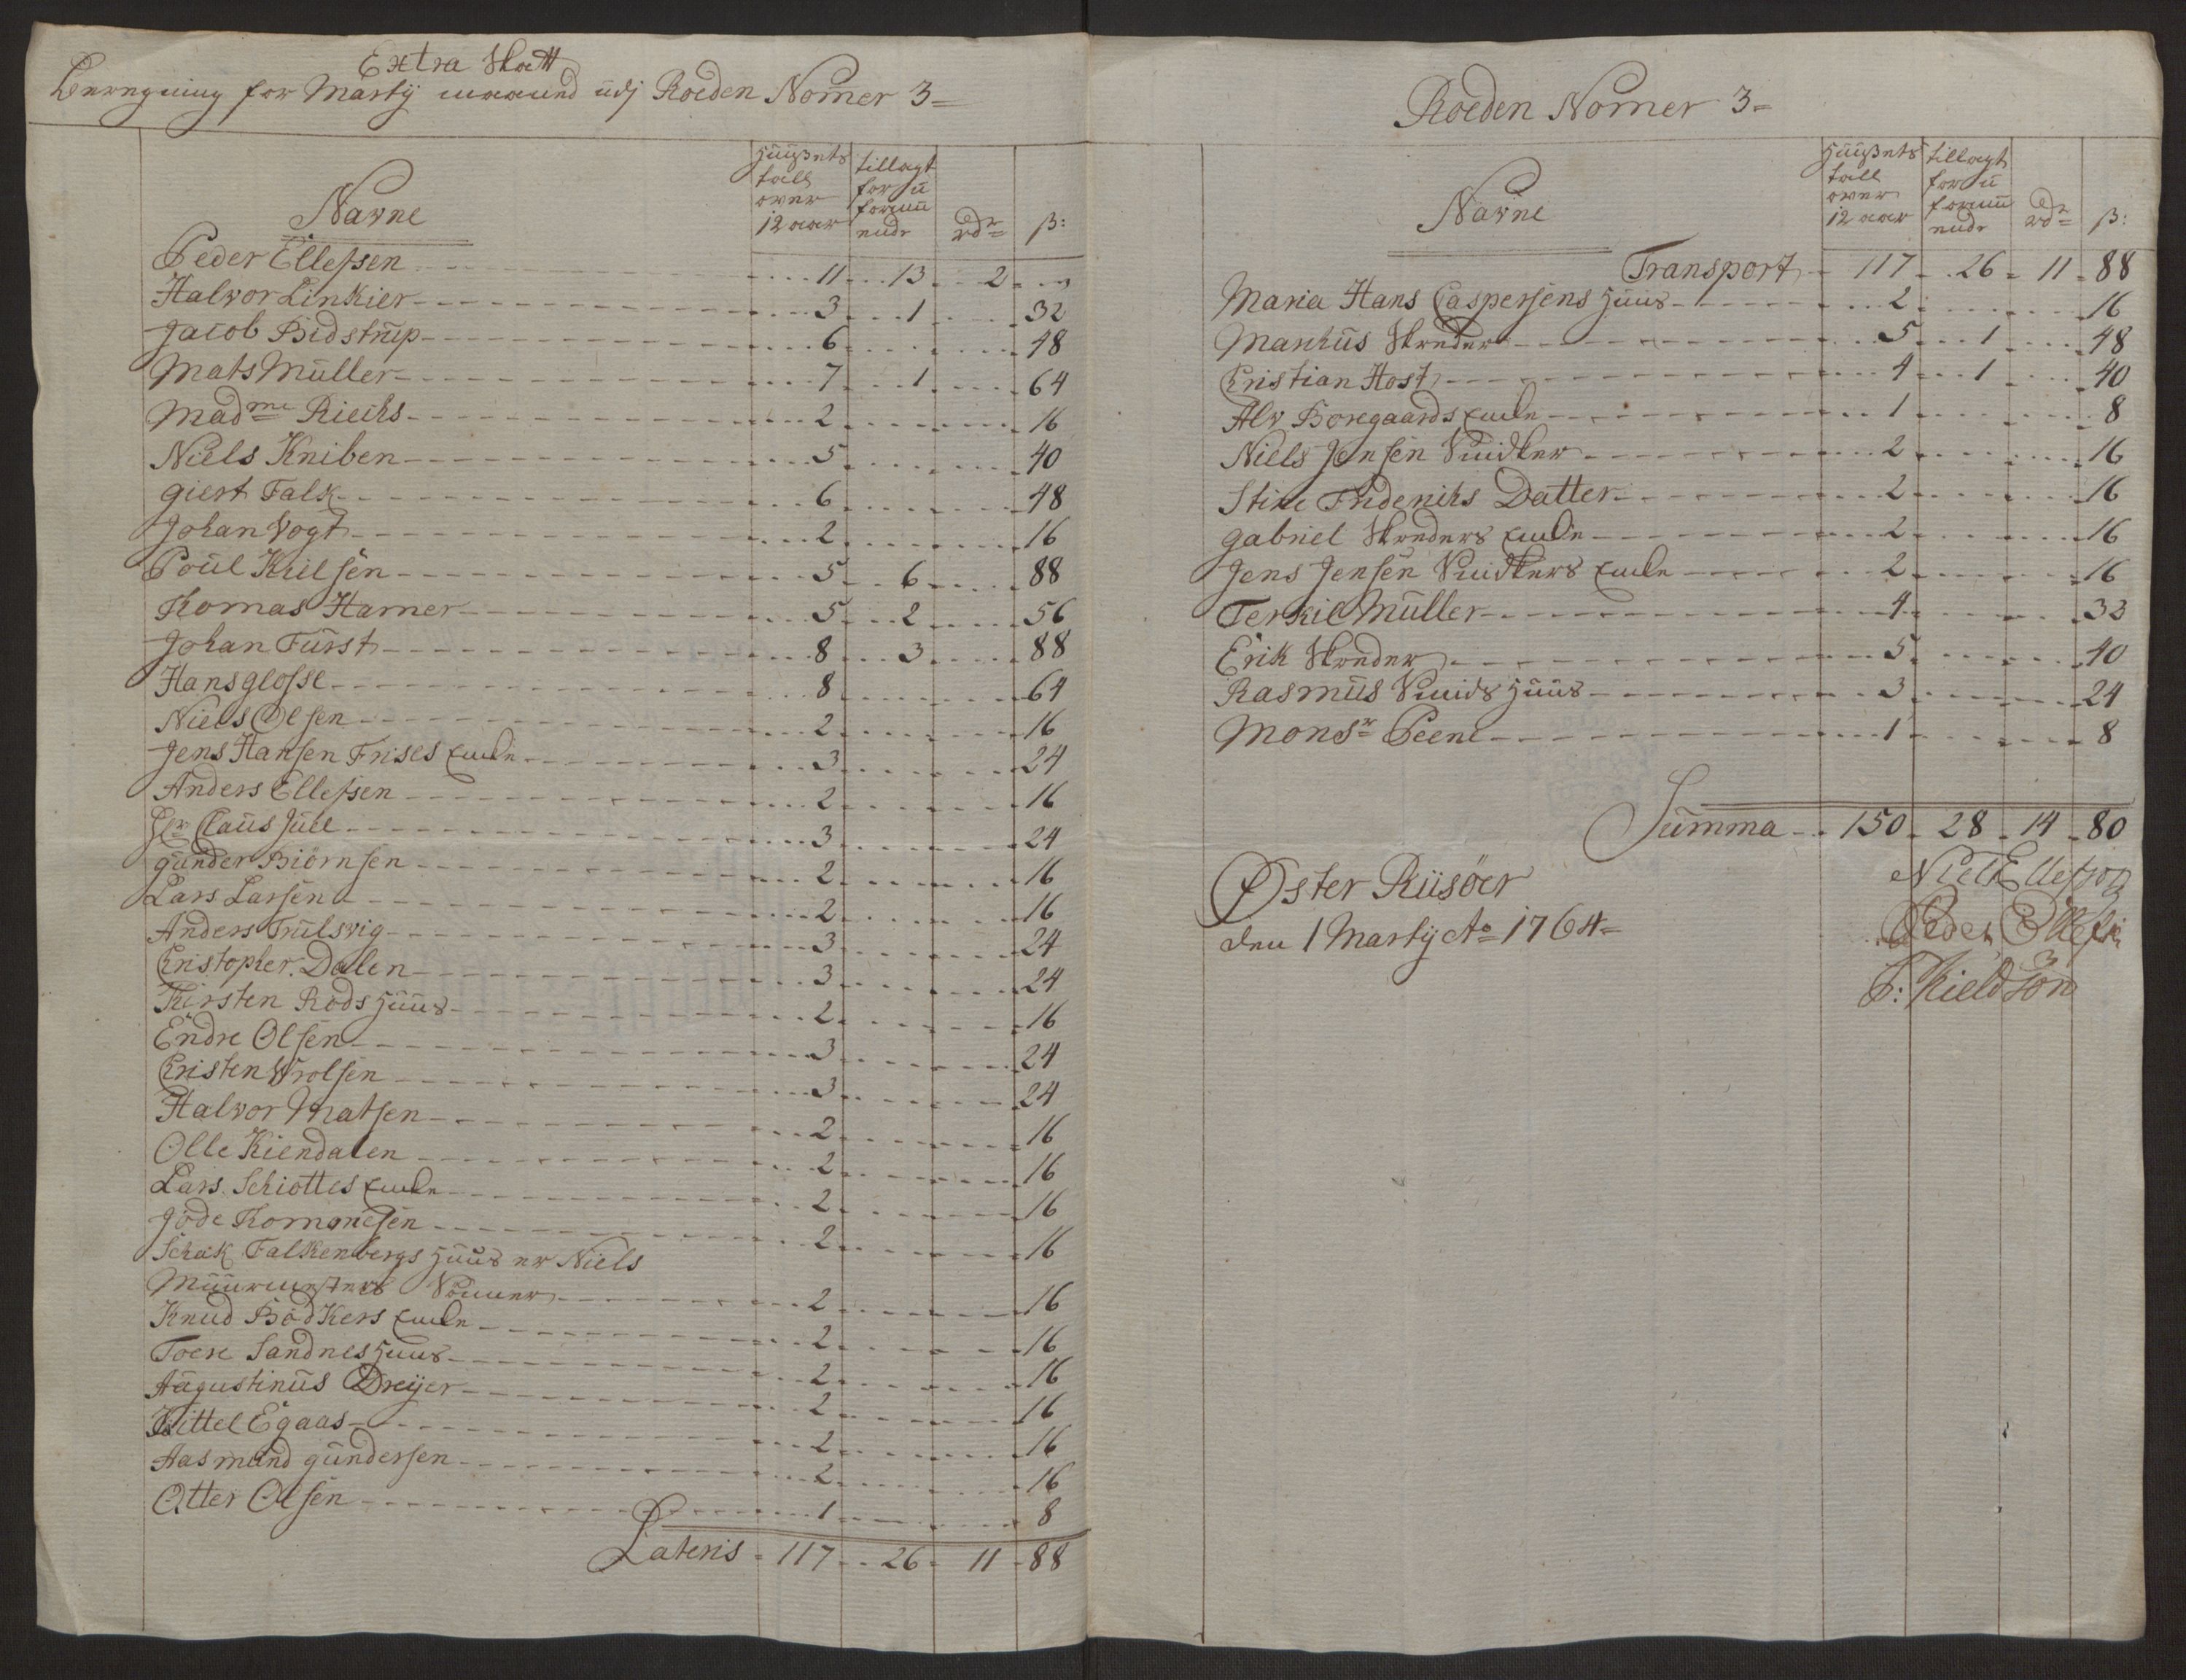 Extra Skatt
Beregning for Martÿ maaned udj Roeden Nomer 3=
Navne
Huusets tall over 12 aar
tillagt for u formuende
rdr
ß:
Peder Ellefsen 11 13 2
Halvor Linkier 3 1 32
Jacob Bidstrup 6 48
Mats Müller 7 1 64
Madme Riechs 2 16
Niels Kniben 5 40
giert Falk 6 48
Johan Vogt 2 16
Poul Kielsen 5 6 88
Thomas Harner 5 2 56
Johan Fürst 8 3 88
Hans glosse 8 64
Niels Olsen 2 16
Jens Hansen Frises Encke 3 24
Anders Ellefsen 2 16
Hr Claus Juel 3 24
gunder Biörnsen 2 16
Lars Larsen 2 16
Anders Trulsvig 3 24
Christopher Dalen 3 24
Kirsten Röds Huus 2 16
Endre Olsen 3 24
Christen Wrolsen 3 24
Halvor Matsen 2 16
Olle Kiendalen 2 16
Lars Schiöttes Encke 2 16
Jöde Thommesen 2 16
Schak Falkenbergs Huus er Niels
Muurmesters Sönner 2 16
Knud Bödkers Encke 2 16
Toere Sandnes Huus 2 16
Augustinus Dreÿer 2 16
Kittel Egaas 2 16
Aasmund gundersen 2 16
Otter Olsen 1 8
Lateris 117 26 11 88
Roeden Nomer 3=
Navne
Huusets tall over 12 aar
tillagt for u formuende
rdr
ß:
Transport 117 26 11 88
Maria Hans Caspersens Huus 2 16
Markus Skreder 5 1 48
Christian Host 4 1 40
Alv Boregaards Encke 1 8
Niels Jensen Snidker 2 16
Stine Friderichs Datter 2 16
gabriel Skreders Encke 2 16
Jens Jensen Snidkers Encke 2 16
Terkil Müller 4 32
Erik Skreder 5 40
Rasmus Smids Huus 3 24
Monsr Peene 1 8
Summa 150 28 14 80
Øster Riisöer
den 1 Martÿ Ao 1764
Niels Ellefson
Peder Ellefsen
P: Kieldson